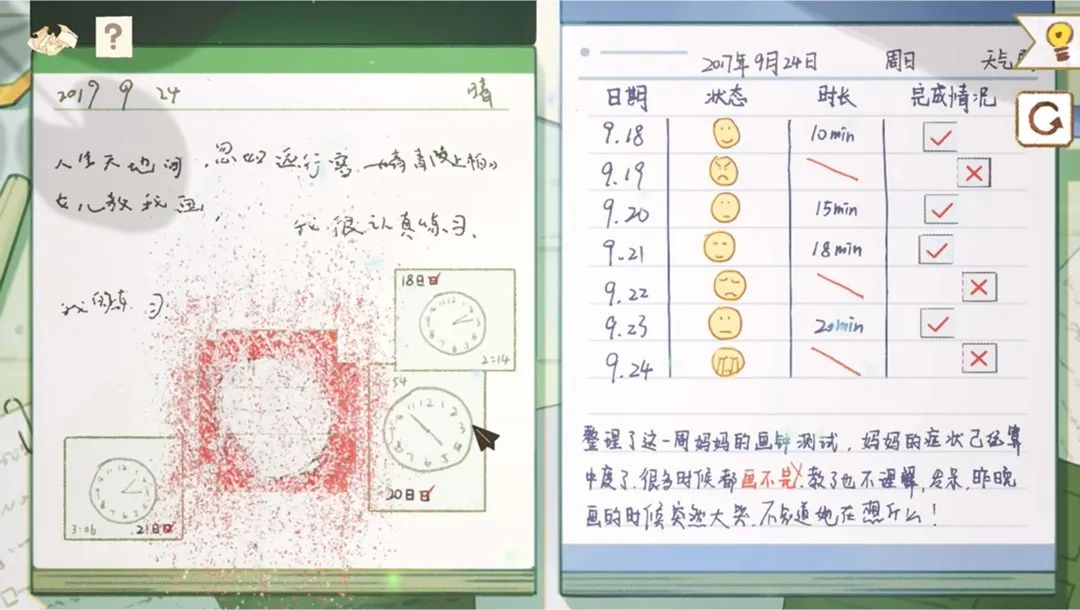 ?
2017 9 24 晴
人生天地间，忽如远行客。《青青陵上柏》
女儿教我画，
我很认真练习.
18日
2:14
54
20日
3:06 21日
2017年9月24日 周日 天气
日期 状态 时长 完成情况
9.18 10min
9.19
9.20 15min
9.21 18min
9.22
9.23 20min
9.24
整理了这一周妈妈的画钟测试，妈妈的症状已经算
中度了.很多时候都画不完,教了也不理解,发呆,昨晚
画的时候突然大哭,不知道她在想什么!